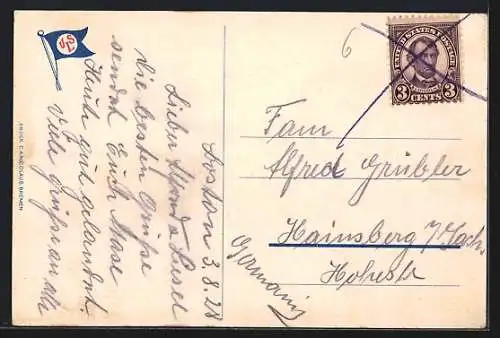 Boston 3.8.28
Liebe Alfred u Liesel
Die besten Grüße
sendet Euch
Heute gut gelandet.
Viele Grüße an alle
USL
DRUCK C. ANDOLAUB, BREMEN
6
UNITED STATES POSTAGE
LINCOLN
3 CENTS 3
Fam
Alfred Grübler
Hainsberg i/Sachs
Hohestr
Germany